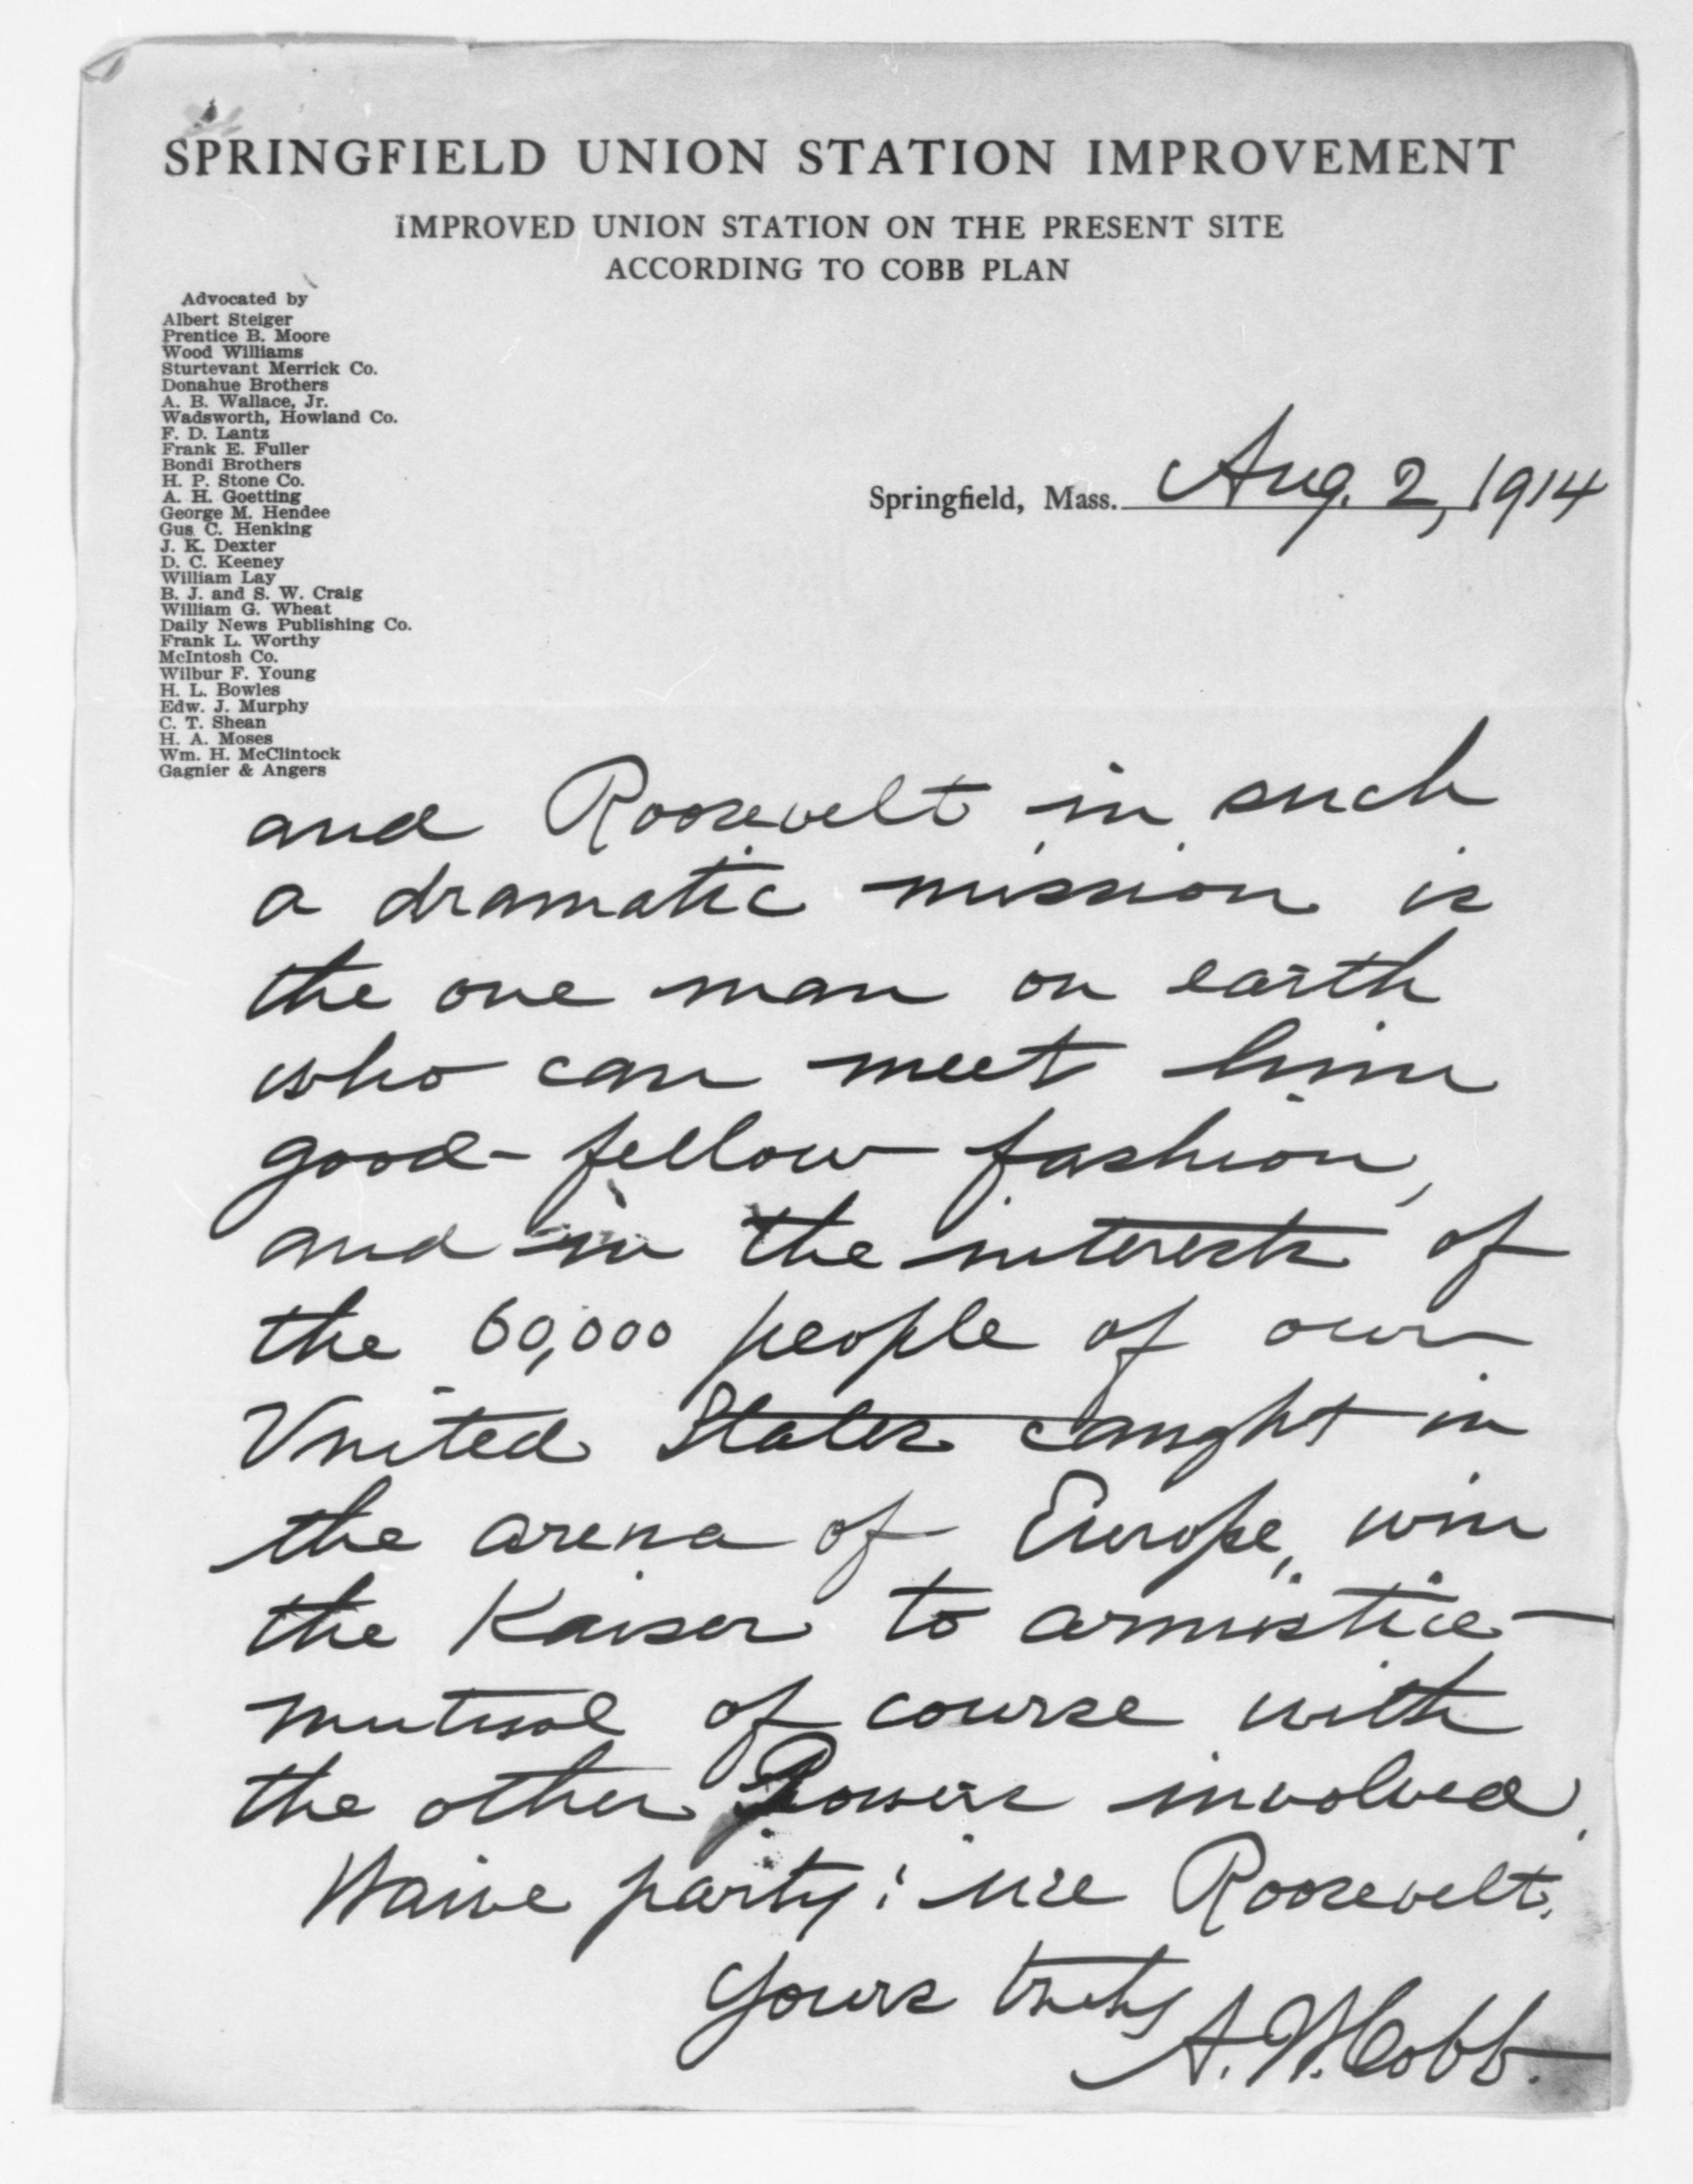 SPRINGFIELD UNION STATION IMPROVEMENT
IMPROVED UNION STATION ON THE PRESENT SITE
ACCORDING TO COBB PLAN
Advocated by
Albert Steiger
Prentice B. Moore
Wood Williams
Sturtevant Merrick Co.
Donahue Brothers
A. B. Wallace, Jr.
Wadsworth, Howland Co.
F. D. Lantz
Frank E. Fuller
Bondi Brothers
H. P. Stone Co.
A. H. Goetting
George M. Hendee
Gus C. Henking
J. K. Dexter
D. C. Keeney
William Lay
B. J. and S. W. Craig
William G. Wheat
Daily News Publishing Co.
Frank L. Worthy
McIntosh Co.
Wilbur F. Young
H. L. Bowles
Edw. J. Murphy
C. T. Shean
H. A. Moses
Wm. H. McClintock
Gagnier & Angers
Springfield, Mass. Aug. 2, 1914
and Roosevelt in such
a dramatic mission is
the one man on earth
who can meet him
good-fellow fashion,
and in the interests of
the 60,000 people of our
United States caught in
the arena of Europe, win
the Kaiser to armistice—
mutual of course with
the other Powers involved.
Waive party; use Roosevelt.
Yours truly
A. W. Cobb.